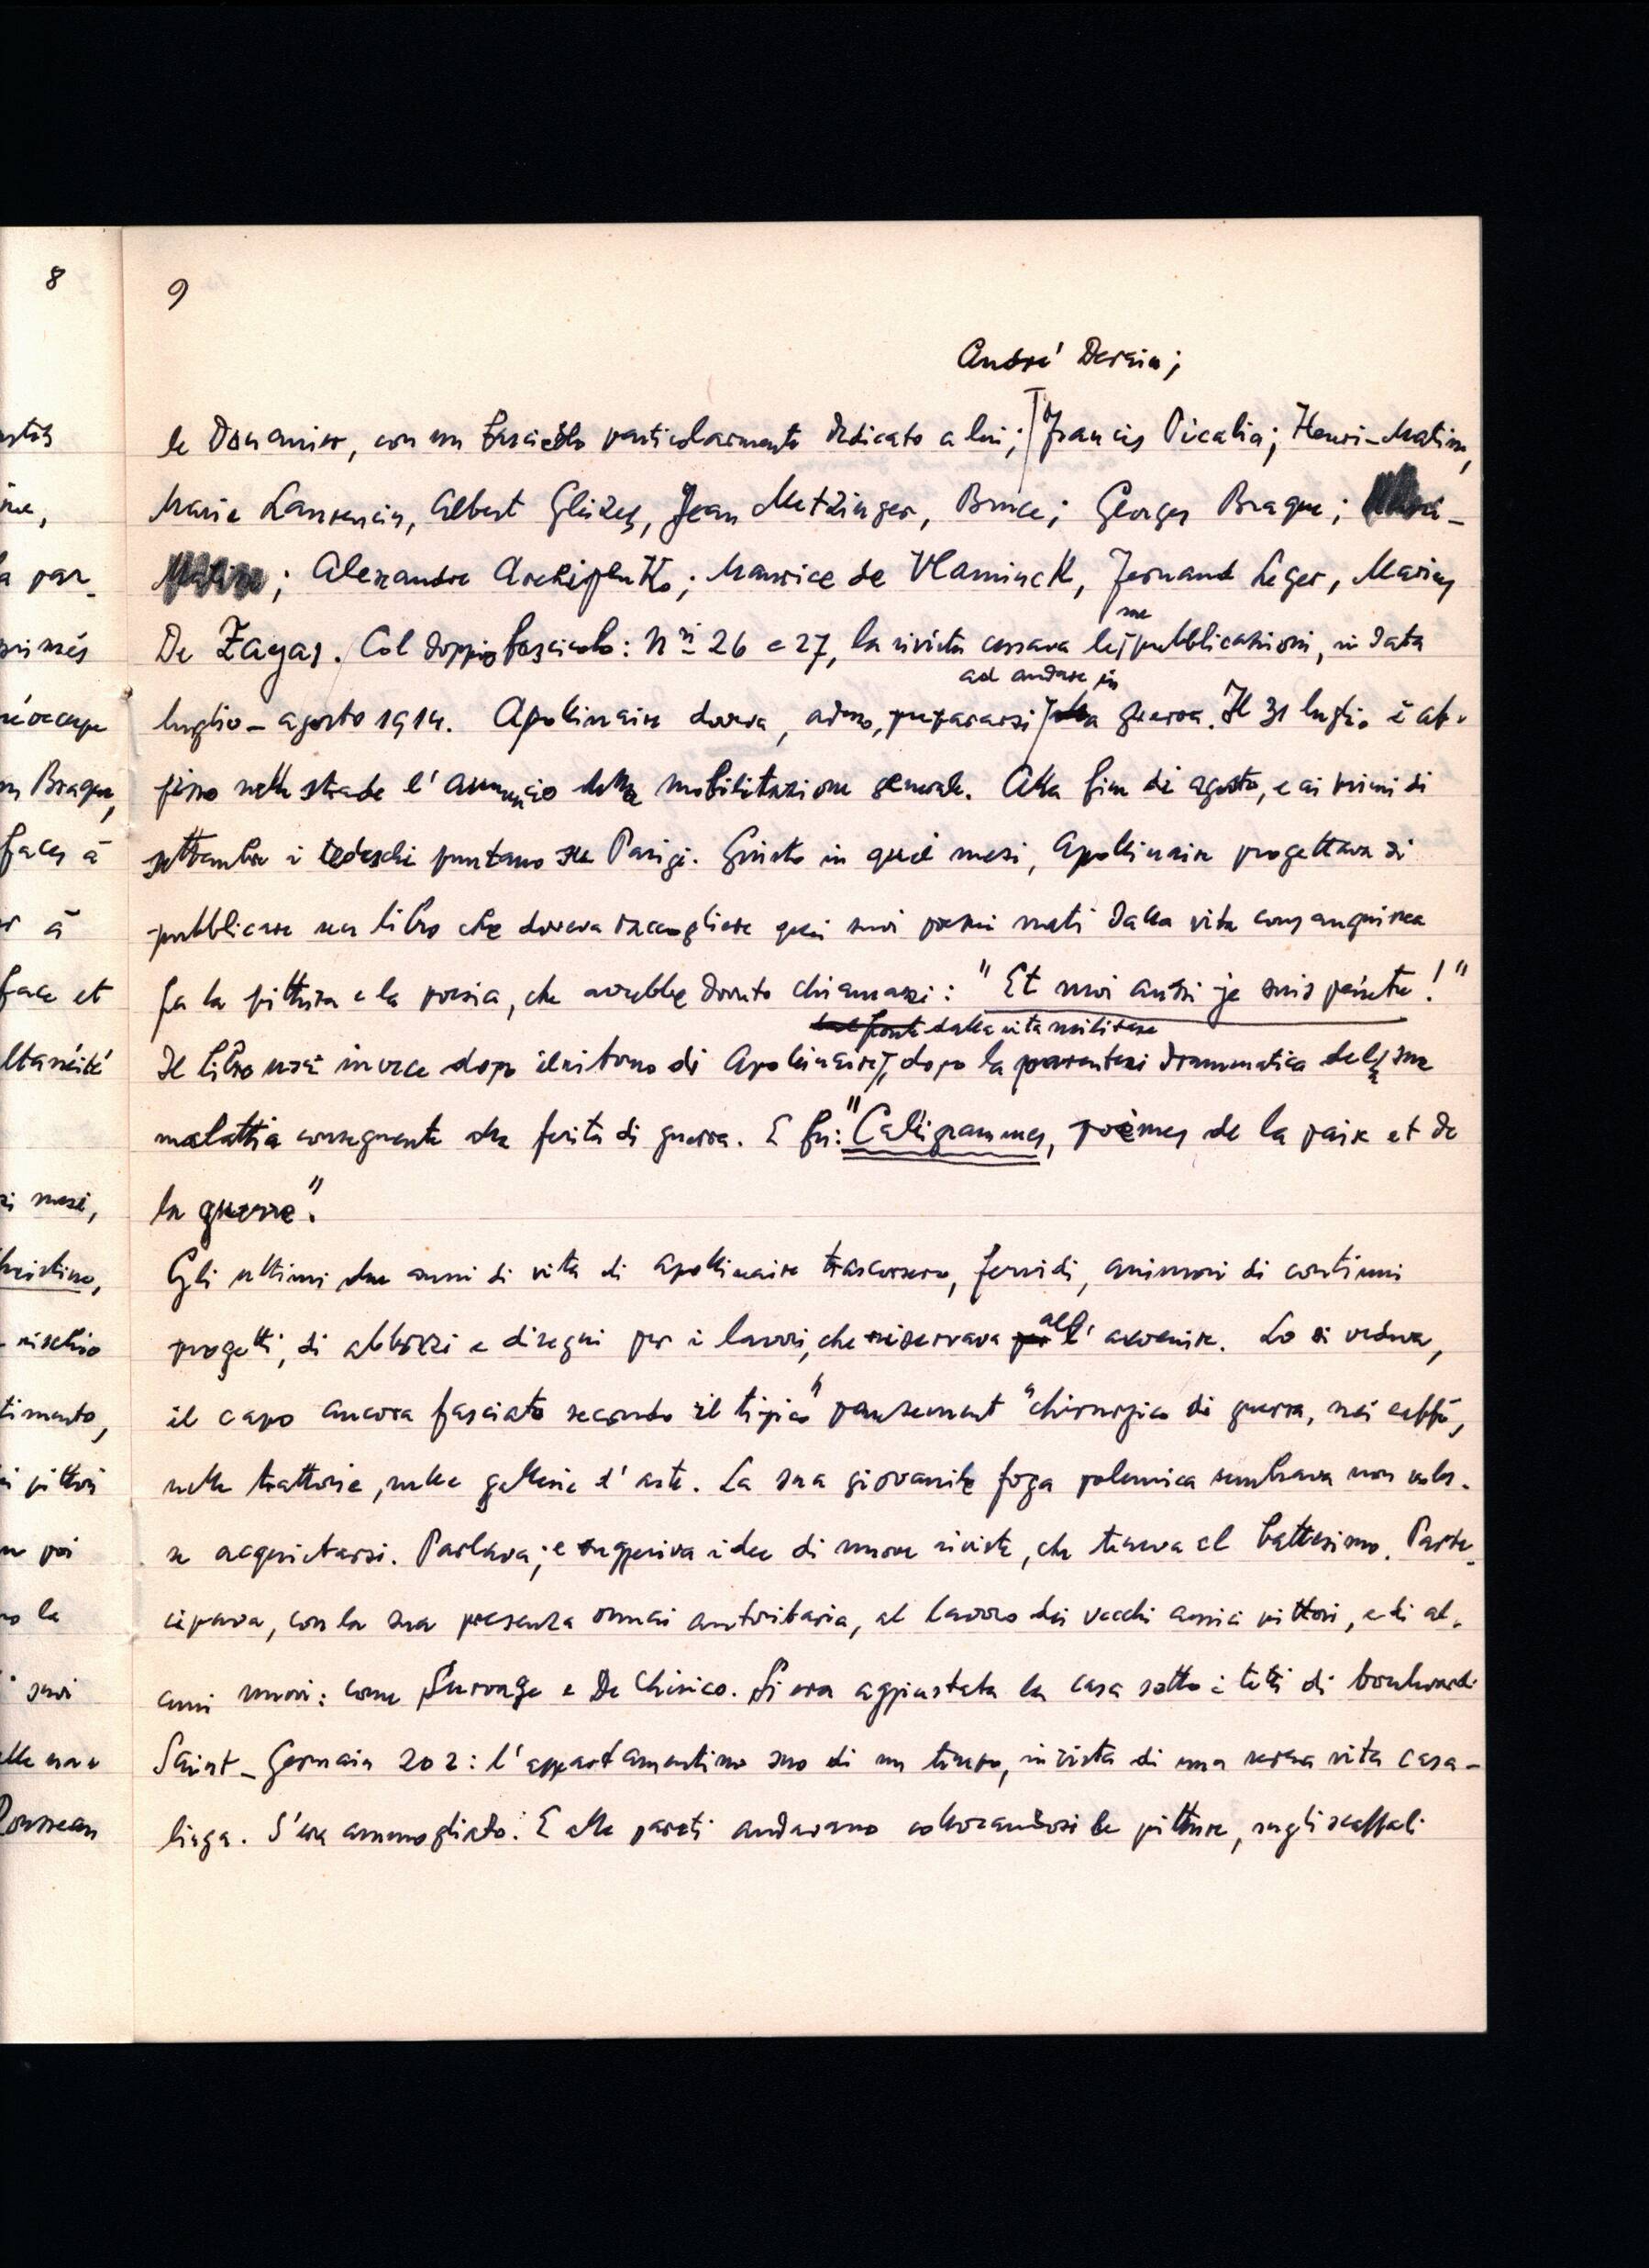 8
9
André Derain;
le Douanier, con un fascicolo particolarmente dedicato a lui; Francis Picabia; Henri-Matisse,
Marie Laurencin, Albert Gleizes, Jean Metzinger, Bruce; Georges Braque;
; Alexandre Archipenko; Maurice de Vlaminck, Fernand Leger, Marius
De Zayas. Col doppio fascicolo: Nri 26 e 27, la rivista cessava le sue pubblicazioni, in data
ad andare in
luglio-agosto 1914. Apollinaire doveva, adesso, prepararsi alla guerra. Il 31 luglio è af-
fisso nelle strade l'annuncio della mobilitazione generale. Alla fine di agosto, e ai primi di
settembre i tedeschi puntano su Parigi. Giusto in quei mesi, Apollinaire progettava di
pubblicare un libro che doveva raccogliere quei suoi poemi nati dalla vita consanguinea
fra la pittura e la poesia, che avrebbe dovuto chiamarsi: "Et moi aussi je suis peintre!"
dal fronte dalla vita militare
Il libro uscì invece dopo il ritorno di Apollinaire, dopo la parentesi drammatica della sua
malattia conseguente alla ferita di guerra. E fu: "Calligrammes, poèmes de la paix et de
la guerre".
Gli ultimi due anni di vita di Apollinaire trascorsero, fervidi, animosi di continui
progetti, di abbozzi e disegni per i lavori, che riservava per all'avvenire. Lo si vedeva,
il capo ancora fasciato secondo il tipico "pansement" chirurgico di guerra, nei caffè,
nelle trattorie, nelle gallerie d'arte. La sua giovanile foga polemica sembrava non voler-
se acquietarsi. Parlava; e suggeriva idee di nuove riviste, che teneva al battesimo. Parte-
cipava, con la sua presenza ormai autoritaria, al lavoro dei vecchi amici pittori, e di al-
cuni nuovi: come Survage e De Chirico. Si era aggiustata la casa sotto i tetti di boulevard
Saint-Germain 202: l'appartamentino suo di un tempo, in vista di una nuova vita casa-
linga. S'era ammogliato. E alle pareti andavano collocandosi le pitture, sugli scaffali